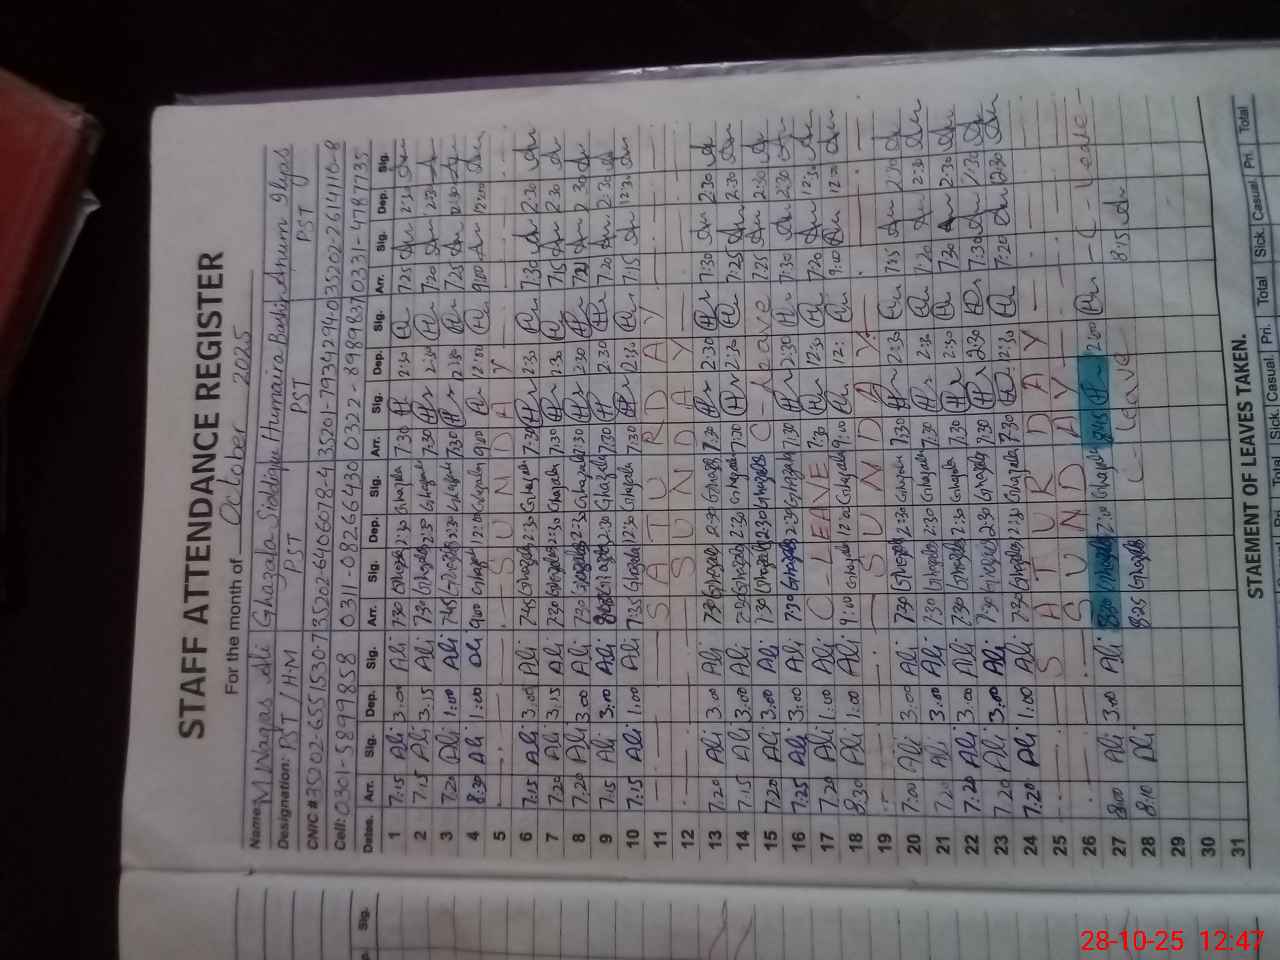 STAFF ATTENDANCE REGISTER
For the month of October 2025
Name: M Waqas Ali Ghazala Siddique Humaira Bashir Anum Ilyas
Designation: PST / H-M PST PST PST
CNIC # 35202-6551530-7 35202-6406078-4 35201-7934294-0 35202-2614116-8
Cell: 0301-5899858 0311-0826643 0322-8989837 0331-4787135
Dates. Arr. Sig. Dep. Sig. Arr. Sig. Dep. Sig. Arr. Sig. Dep. Sig. Arr. Sig. Dep. Sig.
1 7:15 Ali 3:00 Ali 7:30 Ghazala 2:30 Ghazala 7:30 2:30 7:25 2:30
2 7:15 Ali 3:15 Ali 7:30 Ghazala 2:25 Ghazala 7:30 2:30 7:20 2:30
3 7:20 Ali 1:00 Ali 7:45 Ghazala 2:30 Ghazala 7:30 2:30 7:25 2:30
4 8:30 Ali 1:00 Ali 9:00 Ghazala 12:00 Ghazala 9:00 12:00 9:00 12:00
5 SUNDAY
6 7:15 Ali 3:00 Ali 7:45 Ghazala 2:30 Ghazala 7:30 2:30 7:30 2:30
7 7:20 Ali 3:15 Ali 7:30 Ghazala 2:30 Ghazala 7:30 2:30 7:15 2:30
8 7:20 Ali 3:00 Ali 7:30 Ghazala 2:30 Ghazala 7:30 2:30 7:20 2:30
9 7:15 Ali 3:00 Ali Ghazala 2:30 Ghazala 7:30 2:30 7:20 2:30
10 7:15 Ali 1:00 Ali 7:35 Ghazala 12:30 Ghazala 7:30 12:30 7:15 12:30
11 SATURDAY
12 SUNDAY
13 7:20 Ali 3:00 Ali 7:30 Ghazala 2:30 Ghazala 7:30 2:30 7:30 2:30
14 7:15 Ali 3:00 Ali 7:30 Ghazala 2:30 Ghazala 7:30 2:30 7:25 2:30
15 7:20 Ali 3:00 Ali 7:30 Ghazala 2:30 Ghazala C - Leave 7:25 2:30
16 7:25 Ali 3:00 Ali 7:30 Ghazala 2:30 Ghazala 7:30 2:30 7:30 2:30
17 7:20 Ali 1:00 Ali C - LEAVE 7:30 12:30 7:20 12:30
18 8:30 Ali 1:00 Ali 9:00 Ghazala 12:00 Ghazala 9:00 12: 9:10 12:00
19 SUNDAY
20 7:00 Ali 3:00 Ali 7:30 Ghazala 2:30 Ghazala 7:30 2:30 7:25 2:30
21 7:20 Ali 3:00 Ali 7:30 Ghazala 2:30 Ghazala 7:30 2:30 7:20 2:30
22 7:20 Ali 3:00 Ali 7:30 Ghazala 2:30 Ghazala 7:30 2:30 7:30 2:30
23 7:20 Ali 3:00 Ali 7:30 Ghazala 2:30 Ghazala 7:30 2:30 7:30 2:30
24 7:20 Ali 1:00 Ali 7:30 Ghazala 2:30 Ghazala 7:30 12:30 7:20 12:30
25 SATURDAY
26 SUNDAY
27 8:00 Ali 3:00 Ali 8:30 Ghazala 2:00 Ghazala 8:45 2:00 - C - Leave -
28 8:10 Ali 8:25 Ghazala C - Leave 8:15
29
30
31
STAEMENT OF LEAVES TAKEN.
Total Sick Casual. Pri. Total Sick Casual Pri. Total
Sig.
28-10-25 12:47